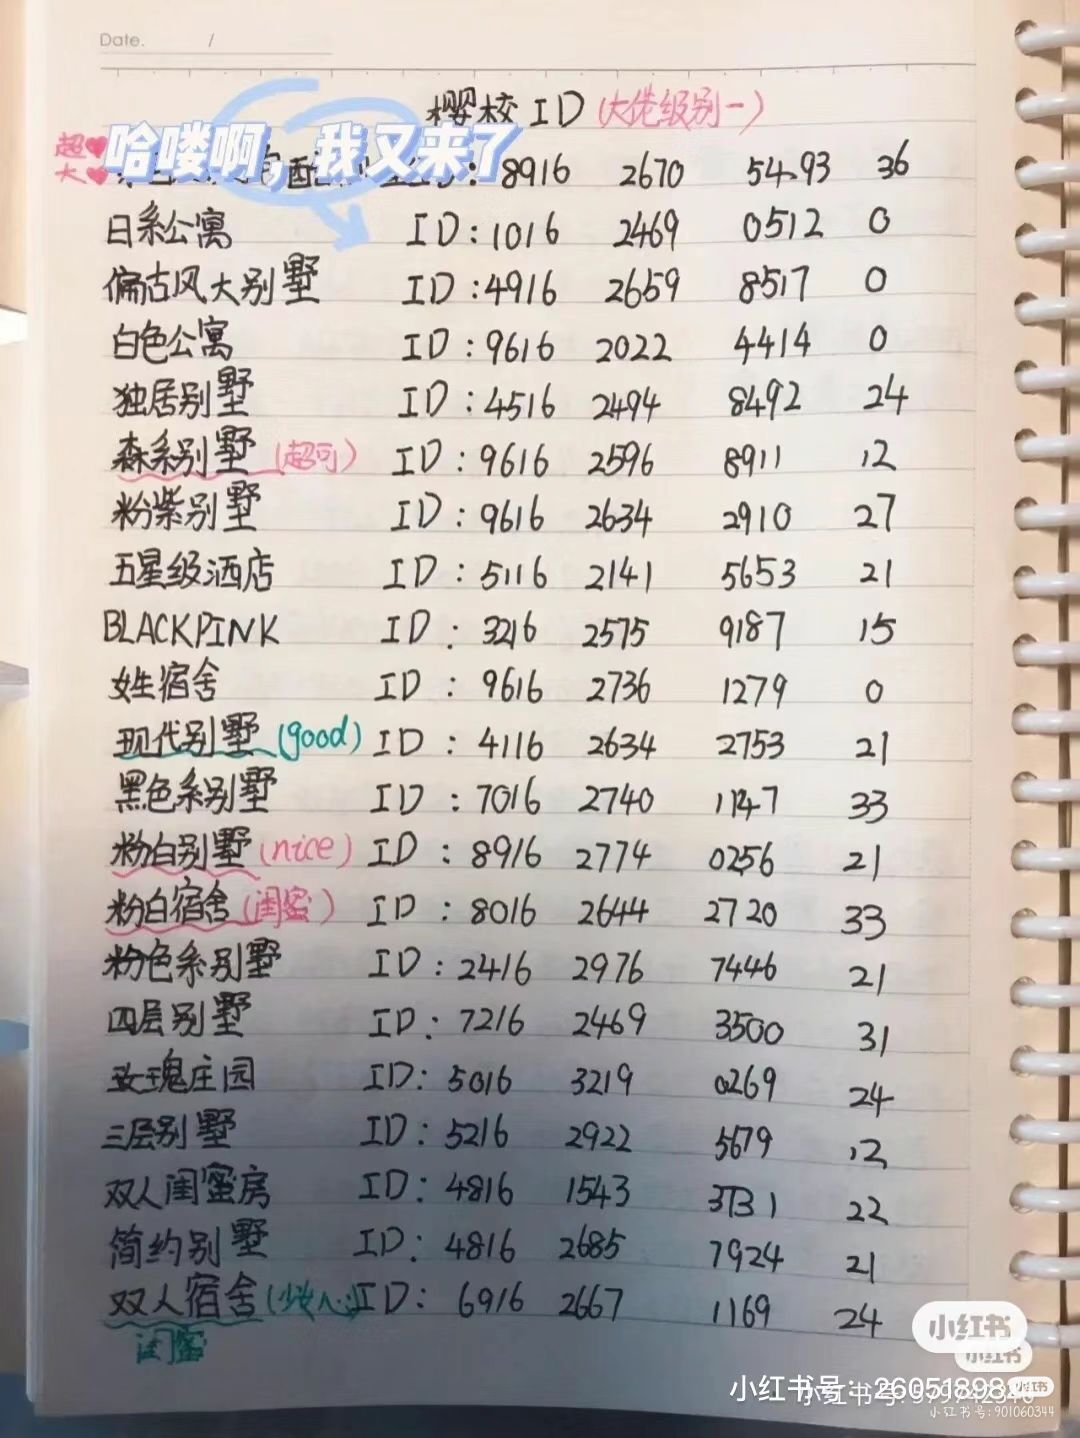 Date. /
樱校ID(大佬级别一)
超
大
哈喽啊,我又来了
8916 2670 5493 36
日系公寓 ID:1016 2469 0512 0
偏古风大别墅 ID:4916 2659 8517 0
白色公寓 ID:9616 2022 4414 0
独居别墅 ID:4516 2494 8492 24
森系别墅(超可) ID:9616 2596 8911 12
粉紫别墅 ID:9616 2634 2910 27
五星级酒店 ID:5116 2141 5653 21
BLACKPINK ID:3216 2575 9187 15
女生宿舍 ID:9616 2736 1279 0
现代别墅(good) ID:4116 2634 2753 21
黑色系别墅 ID:7016 2740 1147 33
粉白别墅(nice) ID:8916 2774 0256 21
粉白宿舍(闺蜜) ID:8016 2644 2720 33
粉色系别墅 ID:2416 2976 7446 21
四层别墅 ID:7216 2469 3500 31
玫瑰庄园 ID:5016 3219 0269 24
三层别墅 ID:5216 2922 5679 12
双人闺蜜房 ID:4816 1543 3731 22
简约别墅 ID:4816 2685 7924 21
双人宿舍(少女心) ID:6916 2667 1169 24
闺蜜
小红书
小红书
小红书号:26051898
小红书
小红书号:901060344